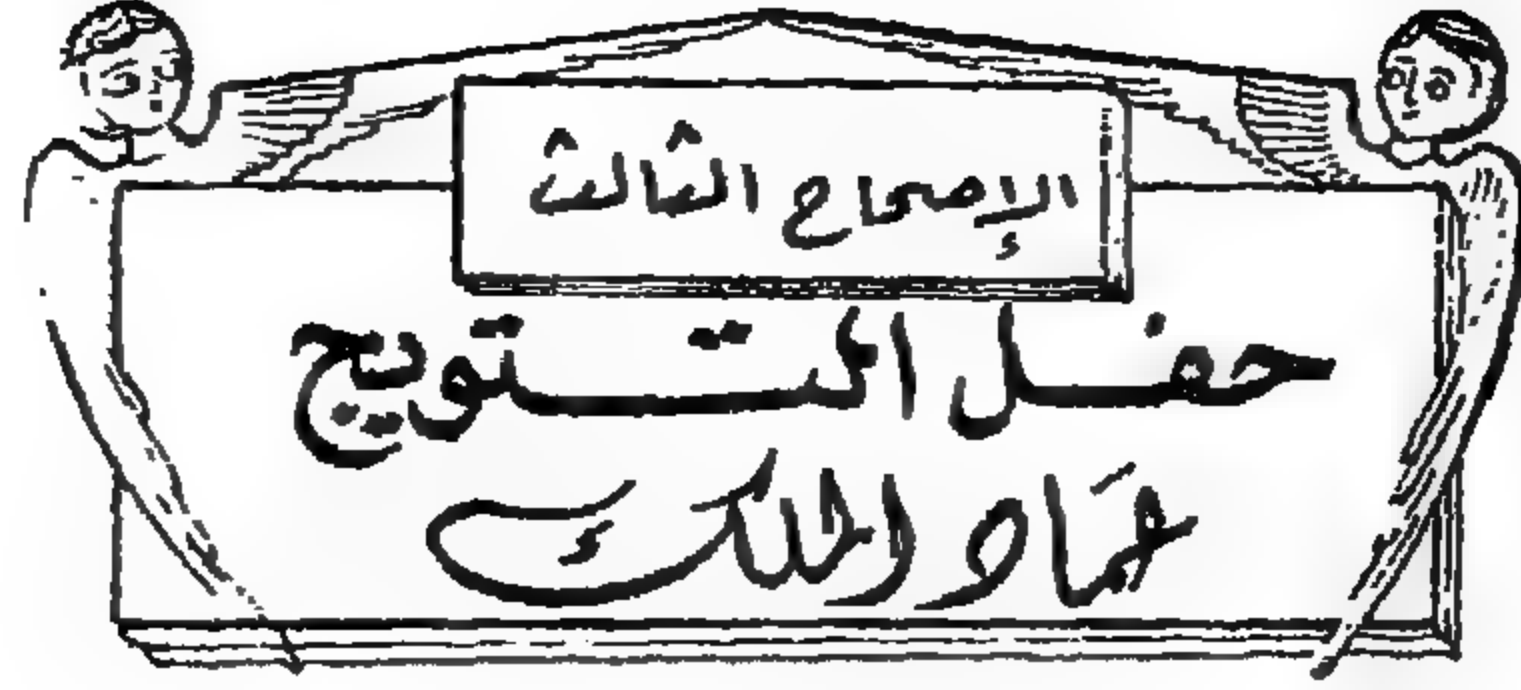 الإصحاح الثالث
حفل التتويج
عمَاد الملك